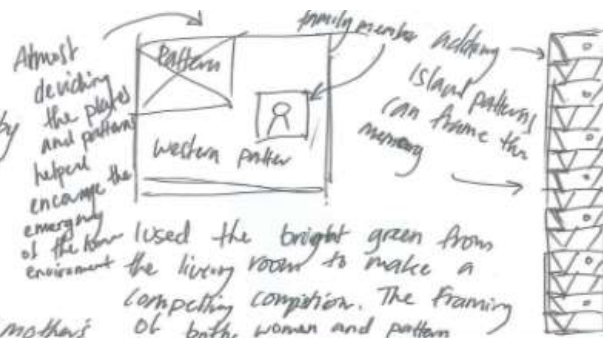 Almost
deviding
the places
and patterns
helped
encourage the
emergency
of the
enviroment
by
Pattern
western patter
family member
adding
Island patterns
can frame the
memory
I used the bright green from
the living room to make a
compelling compistion. The Framing
of both women and pattern
mother's